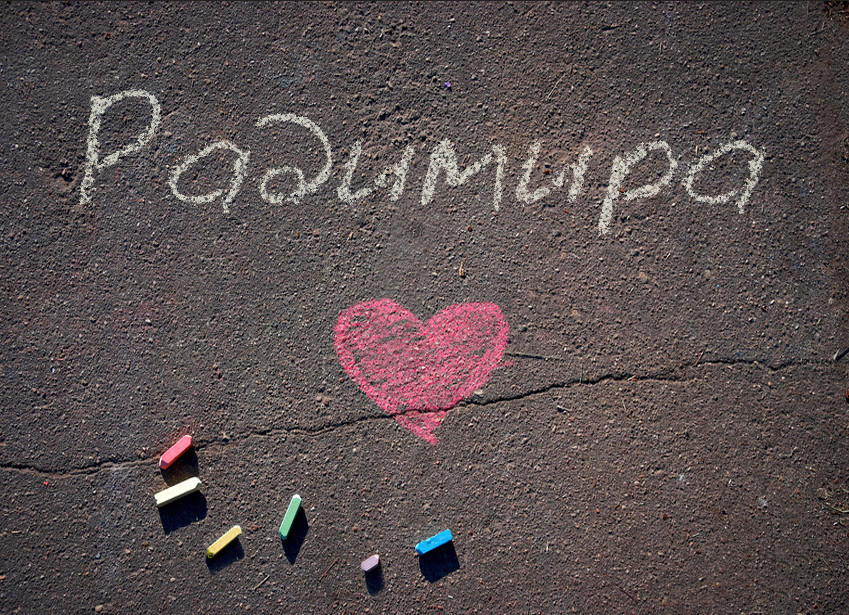 Радимира